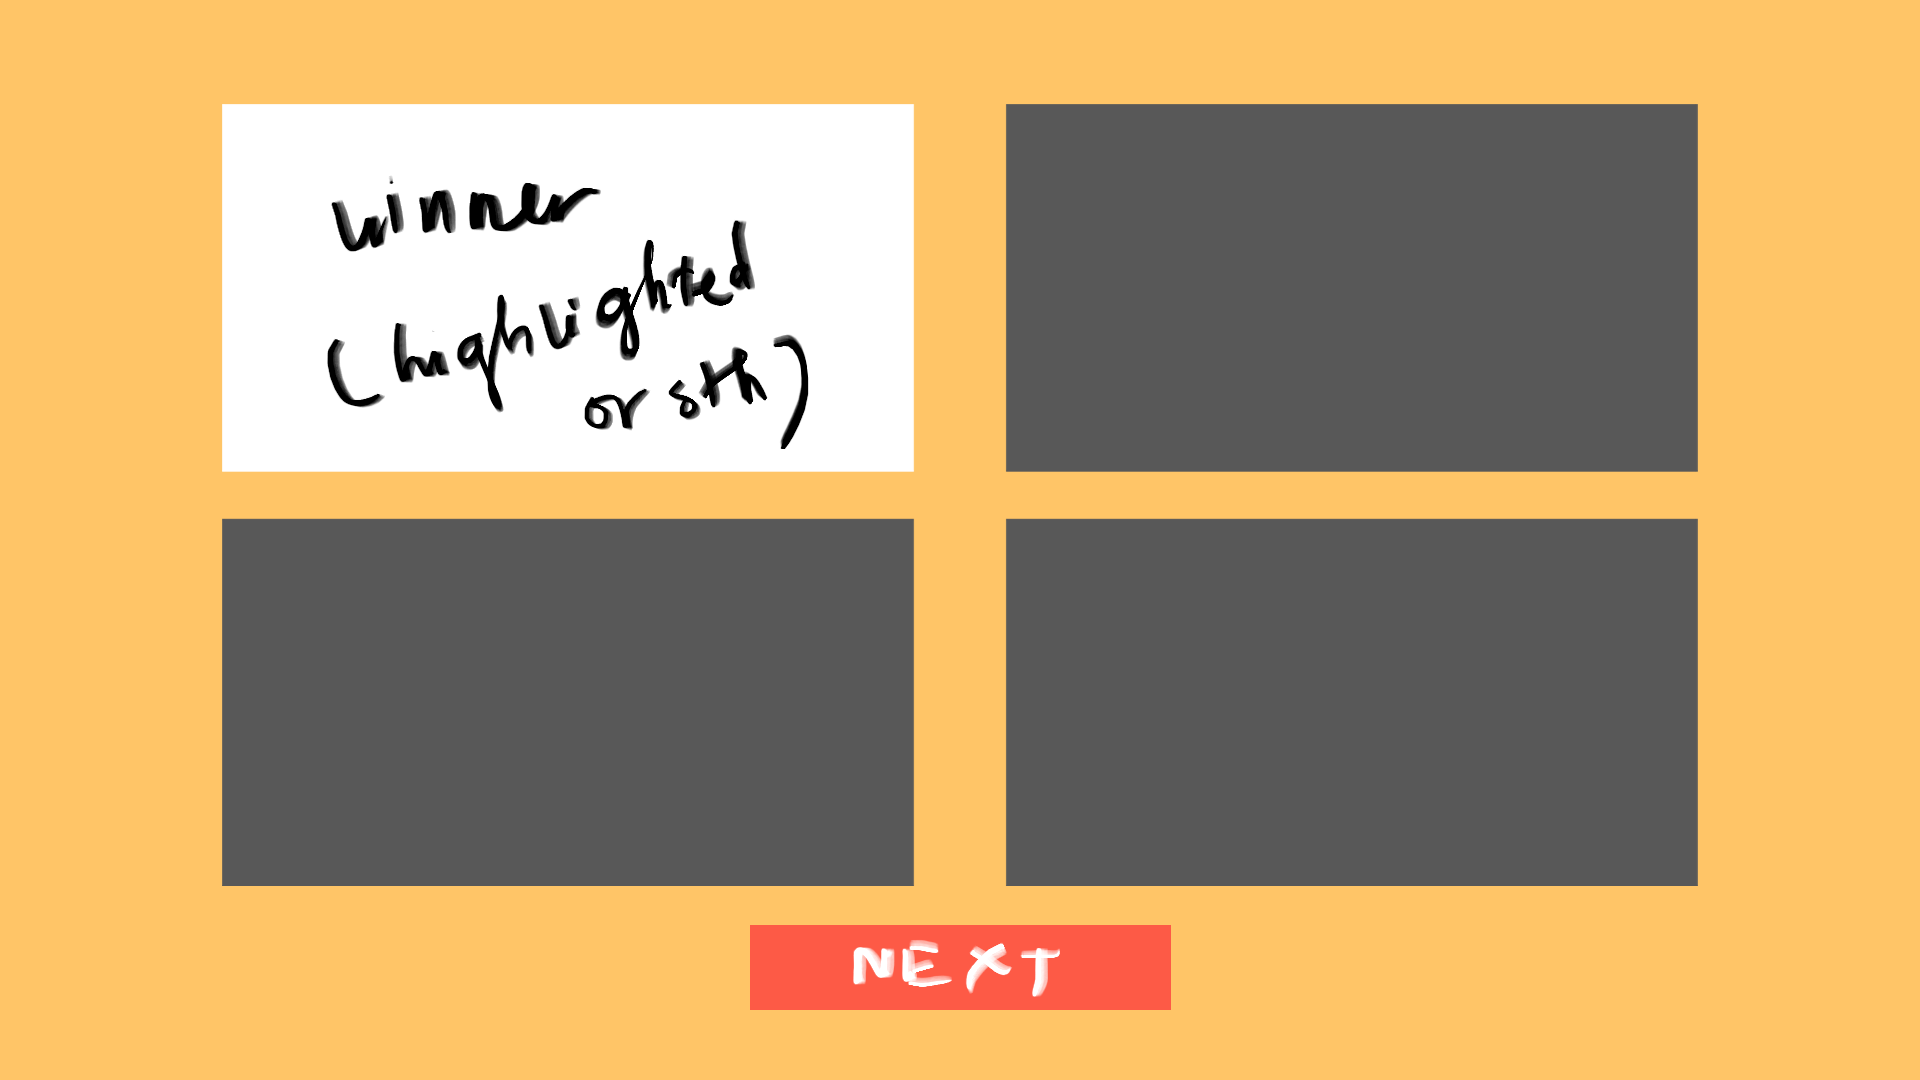 winner
(highlighted
or sth)
NEXT